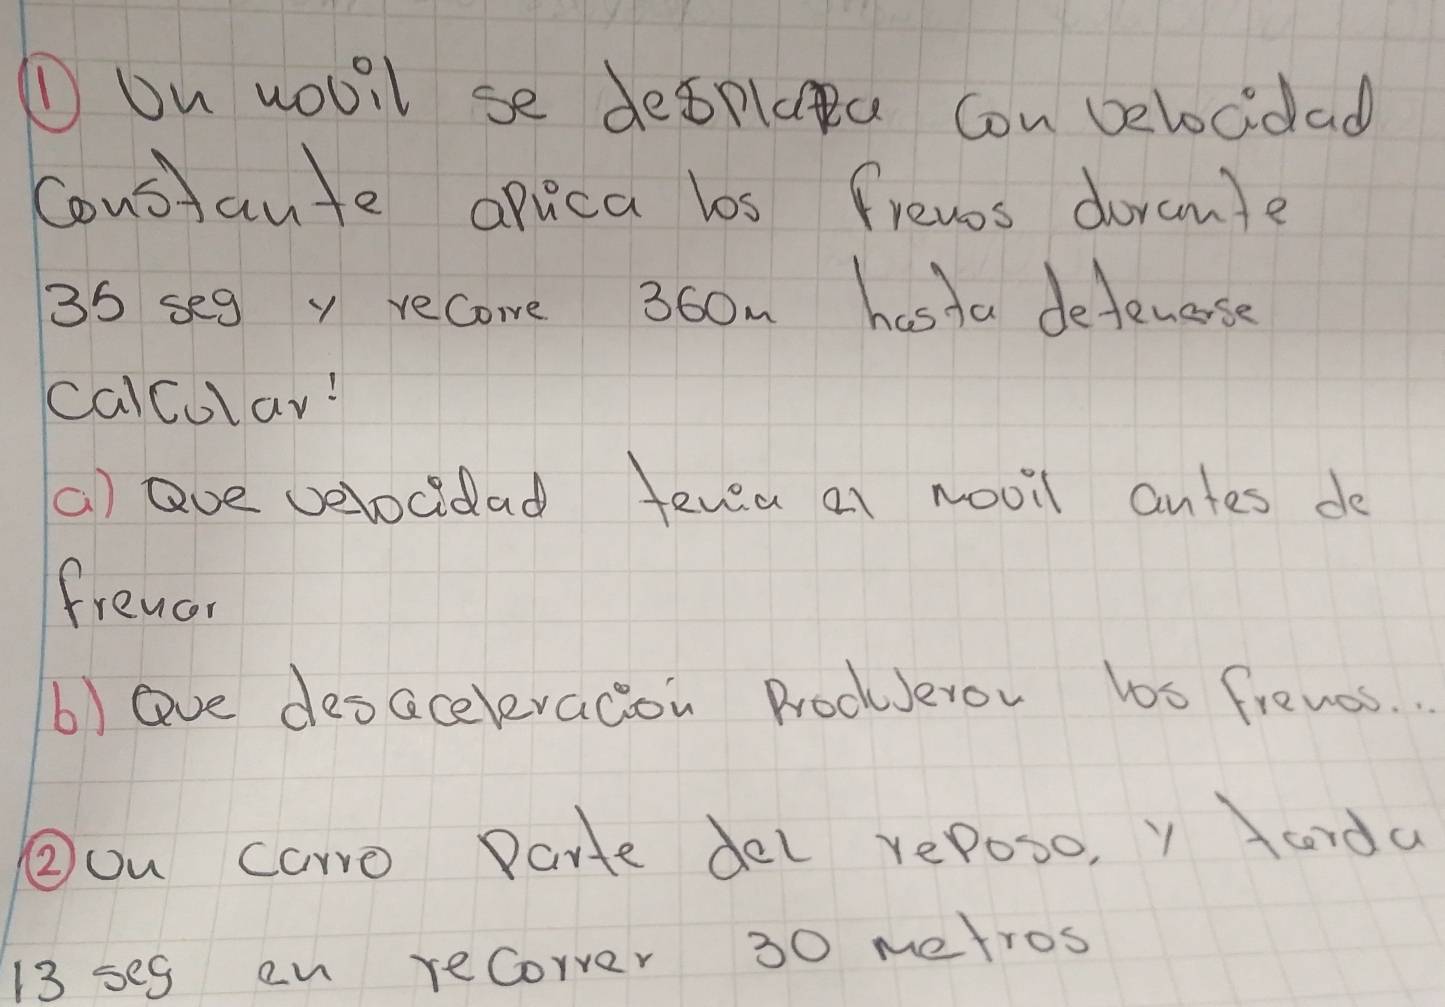 ① Un movil se desplaza con velocidad
constante aplica los frenos durante
35 seg y recorre 360m hasta detenerse
calcular:
a) Que velocidad tenia el movil antes de
frenar
b) Que desaceleración Produjeron los frenos...
② Un carro Parte del reposo, y tarda
13 seg en recorrer 30 metros